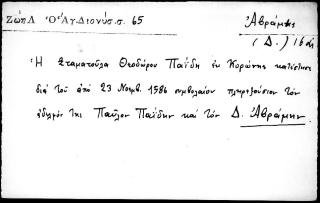 Ζώης Λ. Ὁ Ἅγ. Διονύσ. σ. 65
Ἀβράμης
(Δ.) 16 αἰ.
Ἡ Σταματούλα Θεοδώρου Παΐδη ἐκ Κορώνης κατέστησε
διά τοῦ ἀπό 23 Νοεμβ. 1586 συμβολαίου πληρεξούσιον τόν
ἀδελφόν της Παῦλον Παΐδην καί τόν Δ. Ἀβράμην.